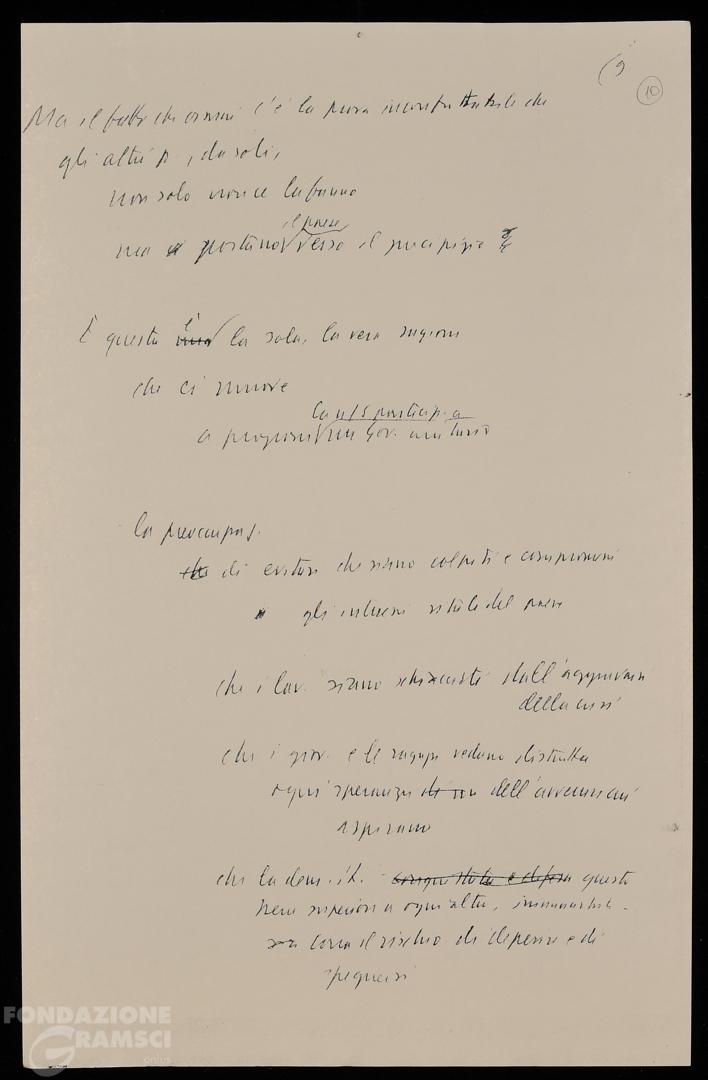 (9
10
Ma il fatto che ormai c'è la prova inconfutabile che
gli altri p., da soli,
non solo non ce la fanno
il paese
ma portano verso il precipizio
È questa è la sola, la vera ragione
che ci muove
con la partecip.
a proporre un Gov. unitario
la preoccupaz.
che di evitare che siano colpiti e compromessi
gli interessi vitali del paese
che i lav. siano schiacciati dall'aggravarsi
della crisi
che i giov. e le ragazze vedano distrutta
ogni speranza dell'avvenire cui
aspirano
che la dem. it. conquistata e difesa questo
bene superiore a ogni altro, irrinunciabile
corra il rischio di deperire e di
spegnersi
FONDAZIONE
GRAMSCI
onlus